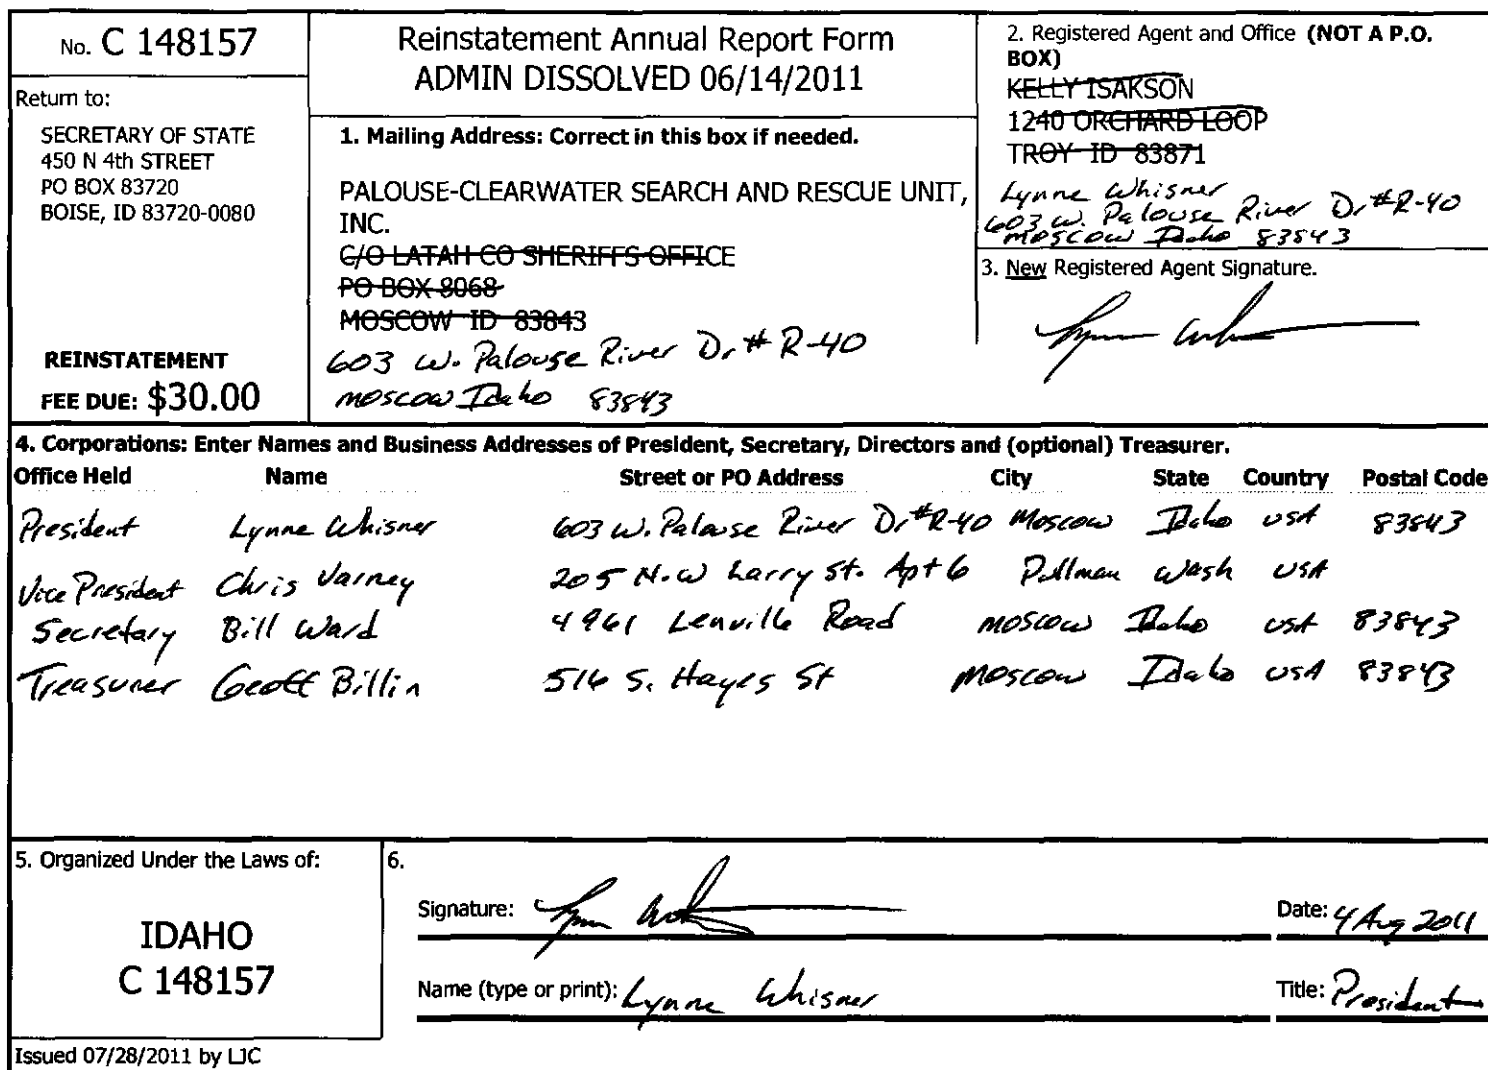 No. C 148157
Return to:
SECRETARY OF STATE
450 N 4th STREET
PO BOX 83720
BOISE, ID 83720-0080
REINSTATEMENT
FEE DUE: $30.00
Reinstatement Annual Report Form
ADMIN DISSOLVED 06/14/2011
1. Mailing Address: Correct in this box if needed.
PALOUSE-CLEARWATER SEARCH AND RESCUE UNIT,
INC.
C/O LATAH CO SHERIFFS OFFICE
PO BOX 8068
MOSCOW ID 83843
603 W. Palouse River Dr # R-40
Moscow Idaho 83843
2. Registered Agent and Office (NOT A P.O.
BOX)
KELLY ISAKSON
1240 ORCHARD LOOP
TROY ID 83871
Lynne Whisner
603 W. Palouse River Dr #R-40
Moscow Idaho 83843
3. New Registered Agent Signature.
4. Corporations: Enter Names and Business Addresses of President, Secretary, Directors and (optional) Treasurer.
Office Held Name Street or PO Address City State Country Postal Code
President Lynne Whisner 603 W. Palouse River Dr #R-40 Moscow Idaho USA 83843
Vice President Chris Varney 205 N.W Larry St. Apt 6 Pullman Wash USA
Secretary Bill Ward 4961 Lenville Road Moscow Idaho USA 83843
Treasurer Geoff Billin 516 S. Hayes St Moscow Idaho USA 83843
5. Organized Under the Laws of:
IDAHO
C 148157
6.
Signature:
Date: 4 Aug 2011
Name (type or print): Lynne Whisner
Title: President
Issued 07/28/2011 by LJC